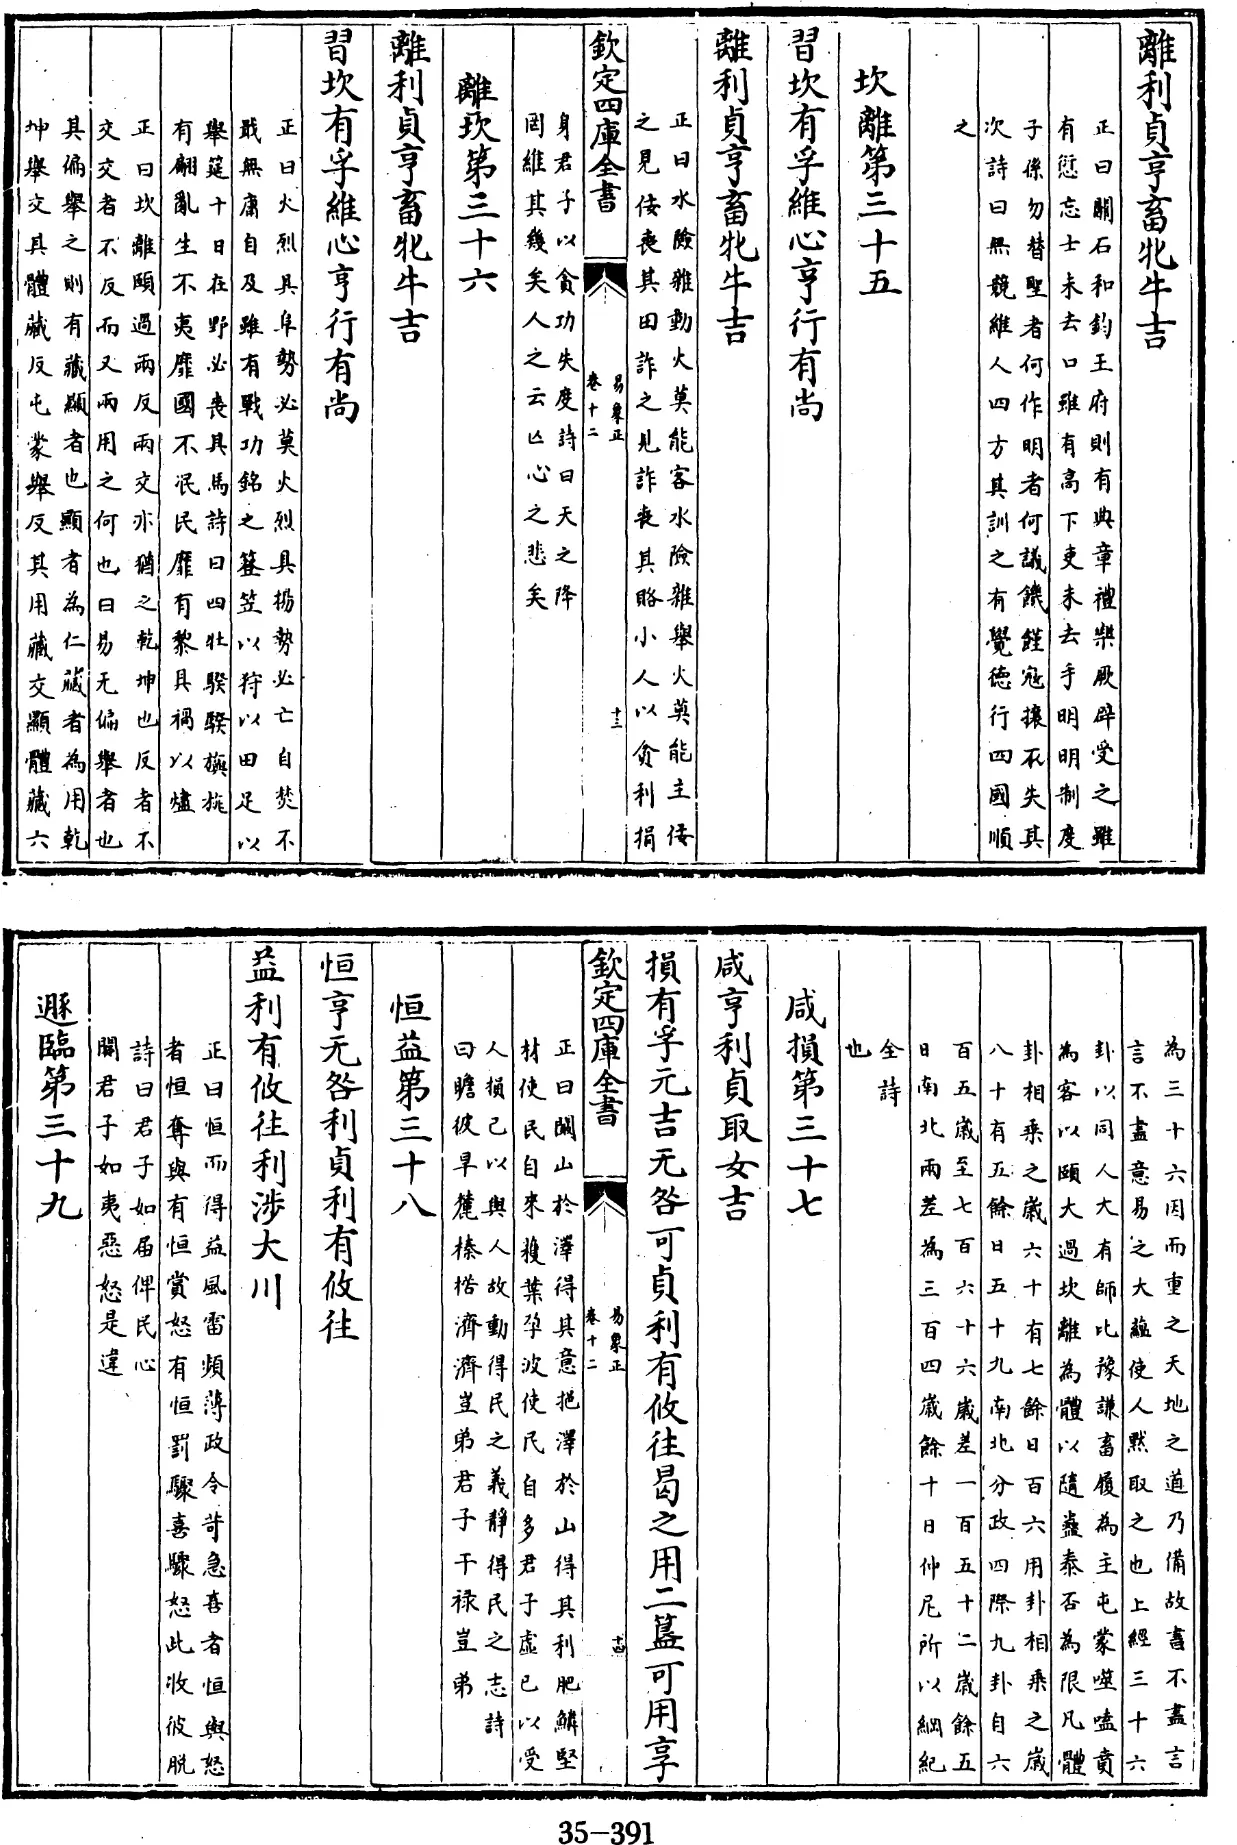 離利貞亨畜牝牛吉
正曰關石和鈞王府則有典章禮樂厥辟受之雖
有愆忘士未去口雖有高下吏未去手明明制度
子係勿替聖者何作明者何議饑饉寇攘不失其
次詩曰無競維人四方其訓之有覺德行四國順
之
坎離第三十五
習坎有孚維心亨行有尚
離利貞亨畜牝牛吉
正曰水險雜動火莫能客水險雜舉火莫能主佞
之見佞喪其田詐之見詐喪其賂小人以貪利捐
欽定四庫全書
易象正
卷十二
十三
身君子以貪功失度詩曰天之降
罔維其幾矣人之云亡心之悲矣
離坎第三十六
離利貞亨畜牝牛吉
習坎有孚維心亨行有尚
正曰火烈具阜勢必莫火烈具揚勢必亡自焚不
戢無庸自及雖有戰功銘之簦笠以狩以田足以
舉筵十日在野必喪其馬詩曰四牡騤騤旟旐
有翩亂生不夷靡國不泯民靡有黎具禍以燼
正曰坎離頤過兩反兩交亦猶之乾坤也反者不
交交者不反而又兩用之何也曰易无偏舉者也
其偏舉之則有藏顯者也顯者為仁藏者為用乾
坤舉交其體藏反屯蒙舉反其用藏交顯體藏六
為三十六因而重之天地之道乃備故書不盡言
言不盡意易之大蘊使人黙取之也上經三十六
卦以同人大有師比豫謙畜履為主屯蒙噬嗑賁
為客以頤大過坎離為體以隨蠱泰否為限凡體
卦相乘之嵗六十有七餘日百六用卦相乘之嵗
八十有五餘日五十九南北分政四際九卦自六
百五嵗至七百六十六嵗差一百五十二嵗餘五
日南北兩差為三百四嵗餘十日仲尼所以綱紀
全詩
也
咸損第三十七
咸亨利貞取女吉
損有孚元吉无咎可貞利有攸往曷之用二簋可用享
欽定四庫全書
易象正
卷十二
十四
正曰闢山於澤得其意挹澤於山得其利肥鱗堅
材使民自來穫葉孕波使民自多君子虛已以受
人損己以與人故動得民之義靜得民之志詩
曰瞻彼旱麓榛楛濟濟豈弟君子干禄豈弟
恒益第三十八
恒亨无咎利貞利有攸往
益利有攸往利渉大川
正曰恒而得益風雷頻薄政令苛急喜者恒與怒
者恒奪與有恒賞怒有恒罰驟喜驟怒此收彼脱
詩曰君子如届俾民心
闋君子如夷惡怒是違
遯臨第三十九
35-391